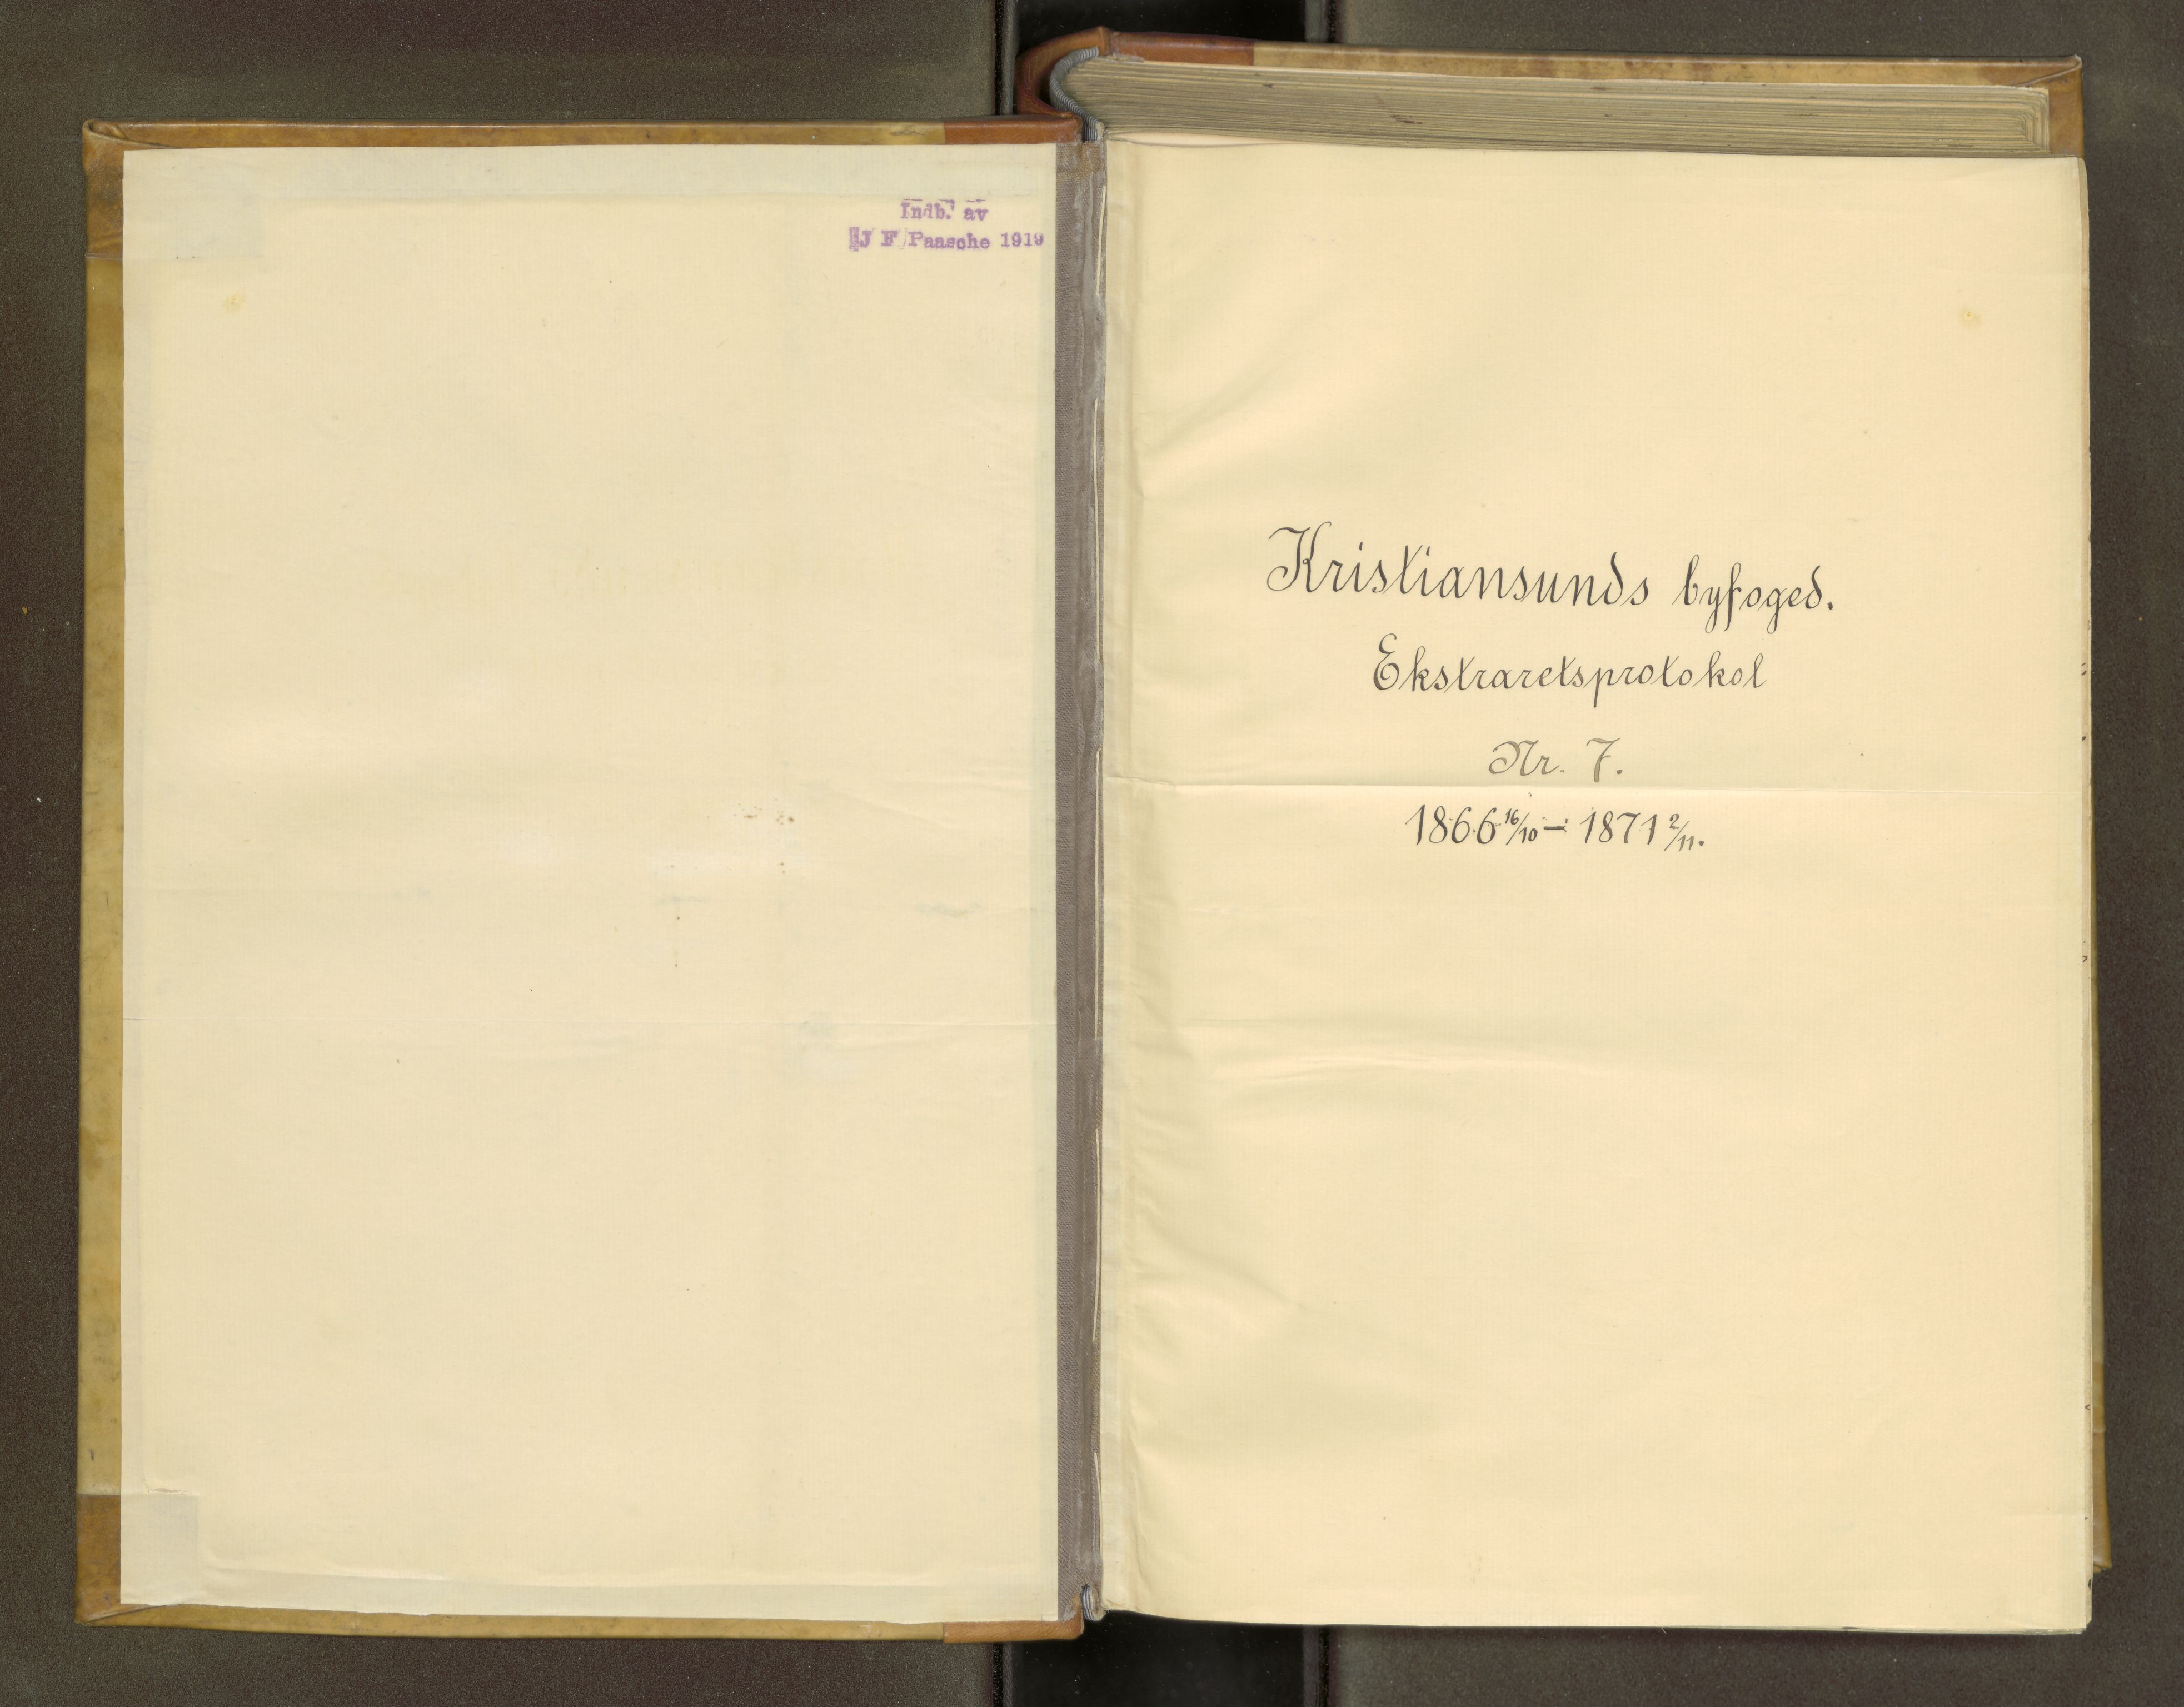 Indb. av
J F Paasche 1919
Kristiansunds byfoged.
Ekstraretsprotokol
Nr. 7.
1866 16/10 – 1871 2/11.